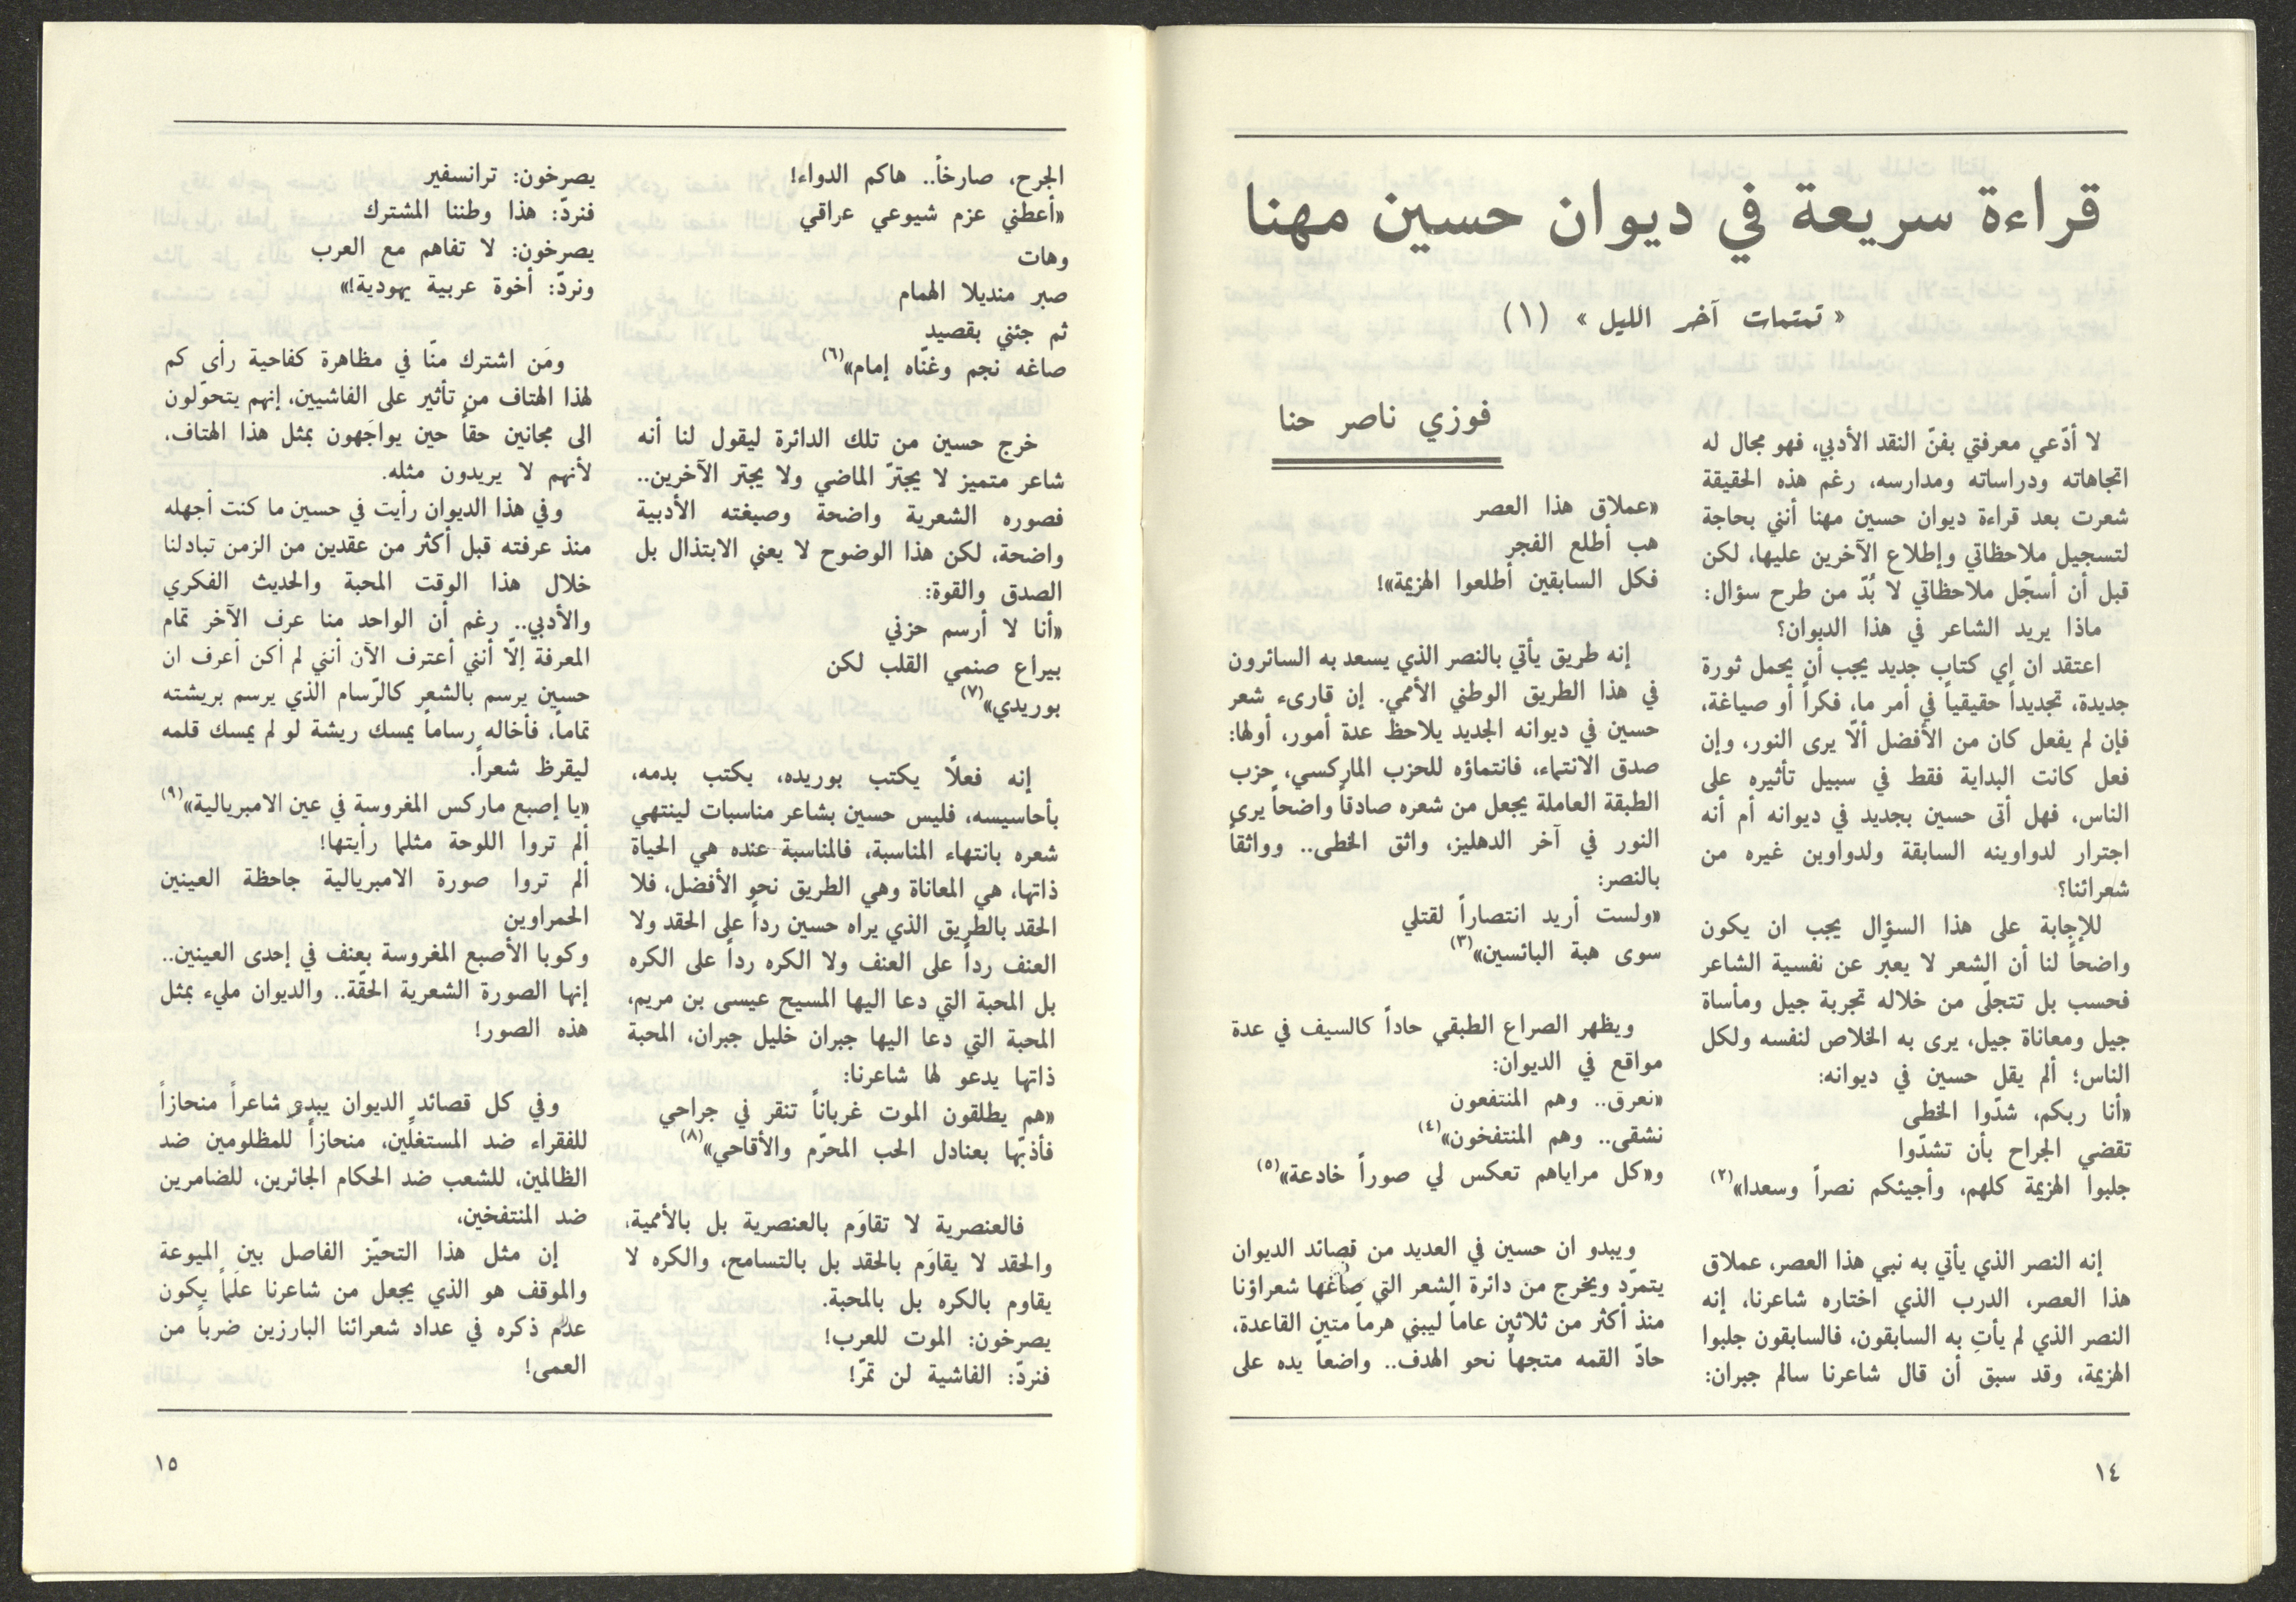 قراءة سريعة في ديوان حسين مهنا
« تمتمات آخر الليل » (١)
فوزي ناصر حنا
لا أدّعي معرفتي بفنّ النقد الأدبي، فهو مجال له
اتجاهاته ودراساته ومدارسه، رغم هذه الحقيقة
شعرت بعد قراءة ديوان حسين مهنا أنني بحاجة
لتسجيل ملاحظاتي وإطلاع الآخرين عليها، لكن
قبل أن أسجّل ملاحظاتي لا بُدّ من طرح سؤال:
ماذا يريد الشاعر في هذا الديوان؟
اعتقد ان اي كتاب جديد يجب أن يحمل ثورة
جديدة، تجديداً حقيقياً في أمر ما، فكراً أو صياغة،
فإن لم يفعل كان من الأفضل ألّا يرى النور، وإن
فعل كانت البداية فقط في سبيل تأثيره على
الناس، فهل أتى حسين بجديد في ديوانه أم أنه
اجترار لدواوينه السابقة ولدواوين غيره من
شعرائنا؟
للإجابة على هذا السؤال يجب ان يكون
واضحاً لنا أن الشعر لا يعبّر عن نفسية الشاعر
فحسب بل تتجلّى من خلاله تجربة جيل ومأساة
جيل ومعاناة جيل، يرى به الخلاص لنفسه ولكل
الناس؛ ألم يقل حسين في ديوانه:
«أنا ربكم، شدّوا الخطى
تقضي الجراح بأن تشدّوا
جلبوا الهزيمة كلهم، وأجيئكم نصراً وسعدا»(٢)
إنه النصر الذي يأتي به نبي هذا العصر، عملاق
هذا العصر، الدرب الذي اختاره شاعرنا، إنه
النصر الذي لم يأتِ به السابقون، فالسابقون جلبوا
الهزيمة، وقد سبق أن قال شاعرنا سالم جبران:
«عملاق هذا العصر
هب أطلع الفجر
فكل السابقين أطلعوا الهزيمة»!
إنه طريق يأتي بالنصر الذي يسعد به السائرون
في هذا الطريق الوطني الأممي. إن قارىء شعر
حسين في ديوانه الجديد يلاحظ عدة أمور، أولها:
صدق الانتماء، فانتماؤه للحزب الماركسي، حزب
الطبقة العاملة يجعل من شعره صادقاً واضحاً يرى
النور في آخر الدهليز، واثق الخطى.. وواثقاً
بالنصر:
«ولست أريد انتصاراً لقتلي
سوى هبة البائسين»(٣)
ويظهر الصراع الطبقي حاداً كالسيف في عدة
مواقع في الديوان:
«نعرق.. وهم المنتفعون
نشقى.. وهم المنتفخون»(٤)
و«كل مراياهم تعكس لي صوراً خادعة»(٥)
ويبدو ان حسين في العديد من قصائد الديوان
يتمرّد ويخرج من دائرة الشعر التي صاغها شعراؤنا
منذ أكثر من ثلاثين عاماً ليبني هرماً متين القاعدة،
حادّ القمه متجهاً نحو الهدف.. واضعاً يده على
١٤
الجرح، صارخاً.. هاكم الدواء!
«أعطني عزم شيوعي عراقي
وهات
صبر منديلا الهمام
ثم جئني بقصيد
صاغه نجم وغنّاه إمام»(٦)
خرج حسين من تلك الدائرة ليقول لنا أنه
شاعر متميز لا يجترّ الماضي ولا يجتر الآخرين..
فصوره الشعرية واضحة وصبغته الأدبية
واضحة، لكن هذا الوضوح لا يعني الابتذال بل
الصدق والقوة:
«أنا لا أرسم حزني
بيراع صنمي القلب لكن
بوريدي»(٧)
إنه فعلاً يكتب بوريده، يكتب بدمه،
بأحاسيسه، فليس حسين بشاعر مناسبات لينتهي
شعره بانتهاء المناسبة، فالمناسبة عنده هي الحياة
ذاتها، هي المعاناة وهي الطريق نحو الأفضل، فلا
الحقد بالطريق الذي يراه حسين رداً على الحقد ولا
العنف رداً على العنف ولا الكره رداً على الكره
بل المحبة التي دعا اليها المسيح عيسى بن مريم،
المحبة التي دعا اليها جبران خليل جبران، المحبة
ذاتها يدعو لها شاعرنا:
«هم يطلقون الموت غرباناً تنقر في جراحي
فأذبّها بعنادل الحب المحرّم والأقاحي»(٨)
فالعنصرية لا تقاوَم بالعنصرية بل بالأممية،
والحقد لا يقاوَم بالحقد بل بالتسامح، والكره لا
يقاوم بالكره بل بالمحبة.
يصرخون: الموت للعرب!
فنردّ: الفاشية لن تمرّ!
يصرخون: ترانسفير
فنردّ: هذا وطننا المشترك
يصرخون: لا تفاهم مع العرب
ونردّ: أخوة عربية يهودية!»
ومَن اشترك منّا في مظاهرة كفاحية رأى كم
لهذا الهتاف من تأثير على الفاشيين، إنهم يتحوّلون
الى مجانين حقاً حين يواجَهون بمثل هذا الهتاف،
لأنهم لا يريدون مثله.
وفي هذا الديوان رأيت في حسين ما كنت أجهله
منذ عرفته قبل أكثر من عقدين من الزمن تبادلنا
خلال هذا الوقت المحبة والحديث الفكري
والأدبي.. رغم أن الواحد منا عرف الآخر تمام
المعرفة إلّا أنني أعترف الآن أنني لم أكن أعرف ان
حسين يرسم بالشعر كالرّسام الذي يرسم بريشته
تماماً، فأخاله رساماً يمسك ريشة لو لم يمسك قلمه
ليقرظ شعراً.
«يا إصبع ماركس المغروسة في عين الامبريالية»(٩)
ألم تروا اللوحة مثلما رأيتها!
ألم تروا صورة الامبريالية جاحظة العينين
الحمراوين
وكوبا الأصبع المغروسة بعنف في إحدى العينين..
إنها الصورة الشعرية الحقّة.. والديوان مليء بمثل
هذه الصور!
وفي كل قصائد الديوان يبدو شاعراً منحازاً
للفقراء ضد المستغلّين، منحازاً للمظلومين ضد
الظالمين، للشعب ضد الحكام الجائرين، للضامرين
ضد المنتفخين،
إن مثل هذا التحيّز الفاصل بين الميوعة
والموقف هو الذي يجعل من شاعرنا علَماً يكون
عدم ذكره في عداد شعرائنا البارزين ضرباً من
العمى!
١٥